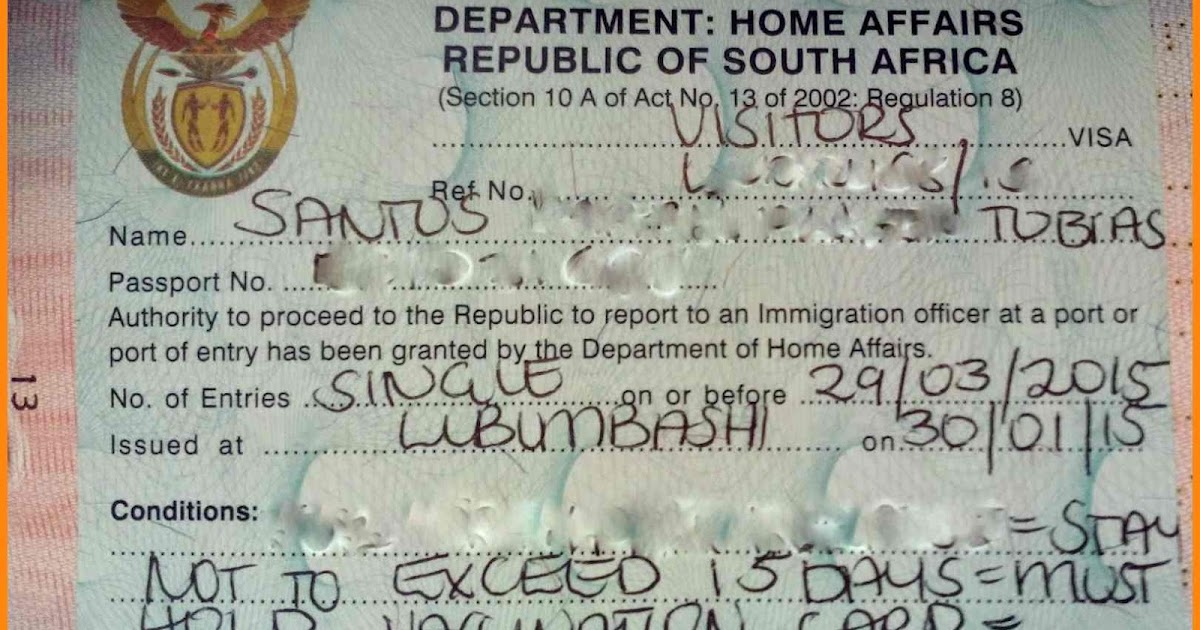 DEPARTMENT: HOME AFFAIRS
REPUBLIC OF SOUTH AFRICA
(Section 10 A of Act No. 13 of 2002: Regulation 8)
VISITORS VISA
Ref No.
Name SANTOS TOBIAS
Passport No.
Authority to proceed to the Republic to report to an Immigration officer at a port or
port of entry has been granted by the Department of Home Affairs.
No. of Entries SINGLE on or before 29/03/2015
Issued at LUBUMBASHI on 30/01/15
Conditions: = STAY
NOT TO EXCEED 15 DAYS = MUST
HOLD VACCINATION CARD =
13